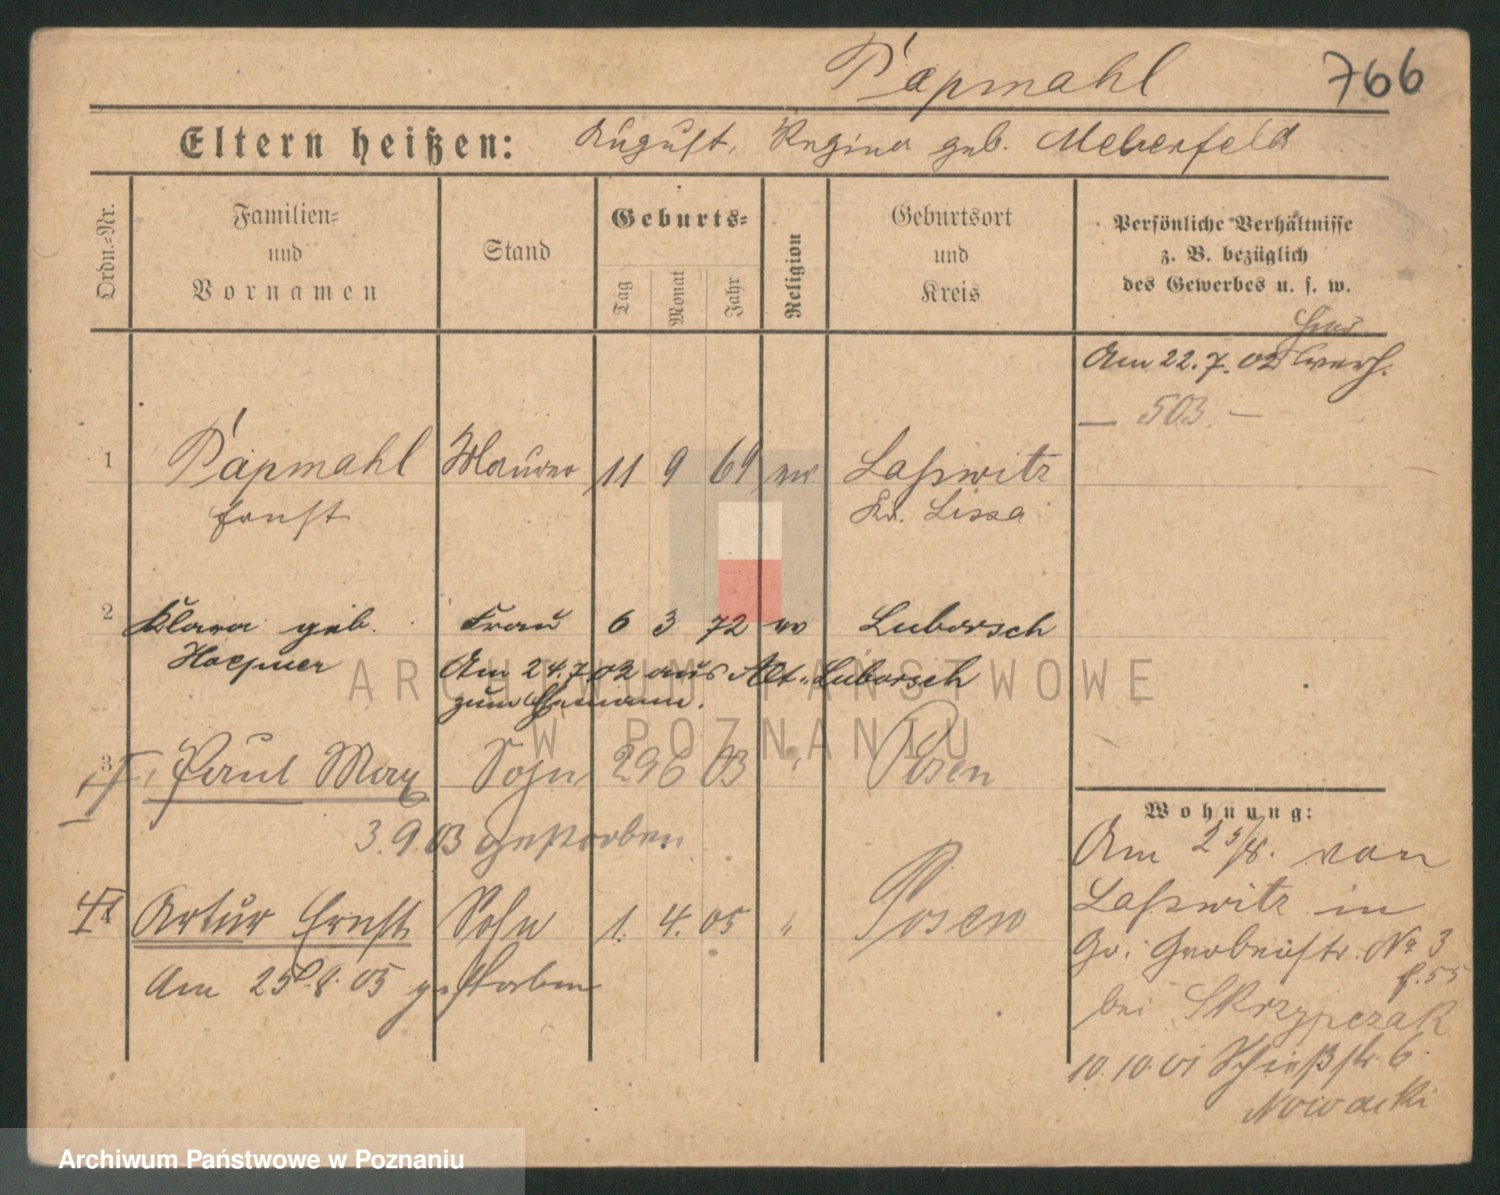 Papmahl 766
Eltern heißen: August, Regina geb. Meberfeld
Ordn.-Nr.
Familien-
und
Vornamen
Stand
Geburts-
Tag
Monat
Jahr
Religion
Geburtsort
und
Kreis
Persönliche Verhältnisse
z. B. bezüglich
des Gewerbes u. s. w.
Am 22.7.02 verh.
— 503 —
1 Papmahl Maurer 11 9 69 ev Laßwitz
Ernst Kr. Lissa
2 Klara geb. Frau 6 3 72 ev Luborsch
Hoepner Am 24.7.02 aus Alt-Luborsch
zum Ehemann.
3 Paul Max Sohn 29 6 03 " Posen
3.9.03 gestorben
4 Artur Ernst Sohn 1. 4. 05 " Posen
Am 25.8.05 gestorben
Wohnung:
Am 25/8. von
Laßwitz in
Gr. Gerberstr. No 3
bei Skrzypczak
10.10.01 Schießstr. 6.
Nowacki
ARCHIWUM PAŃSTWOWE
W POZNANIU
Archiwum Państwowe w Poznaniu